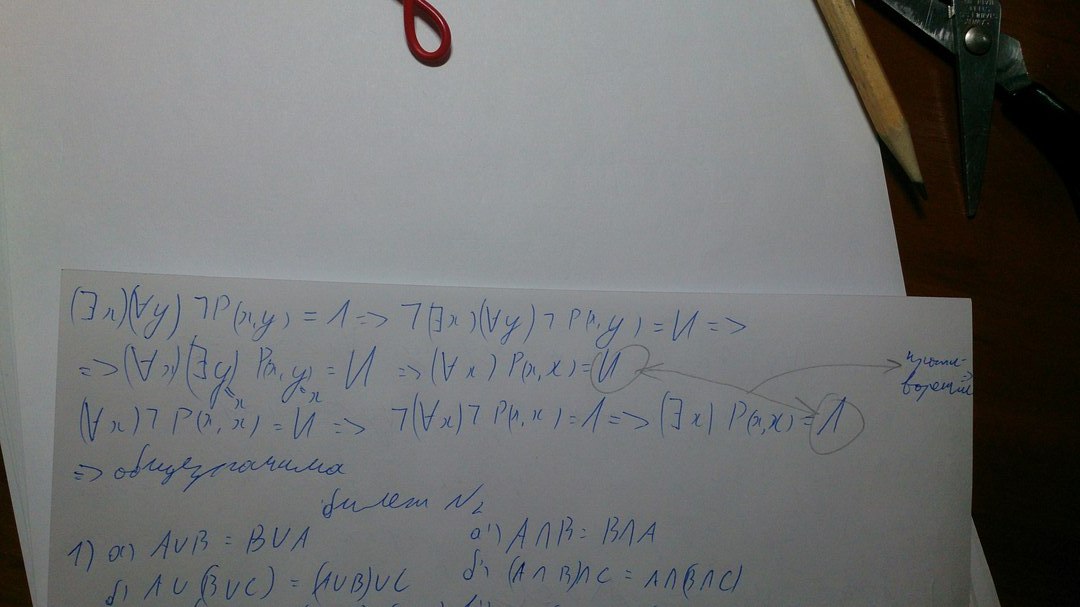 (∃x)(∀y) ¬P(x,y) = Л => ¬(∃x)(∀y) ¬ P(x,y) = И =>
=> (∀x)(∃y) P(x,y) = И => (∀x) P(x,x) = И
x x
противоречие =>
(∀x) ¬ P(x,x) = И => ¬(∀x) ¬ P(x,x) = Л => (∃x) P(x,x) = Л
=> общезначима
билет N2
1) а) A∪B = B∪A а') A∩B = B∩A
б) A∪(B∪C) = (A∪B)∪C б') (A∩B)∩C = A∩(B∩C)